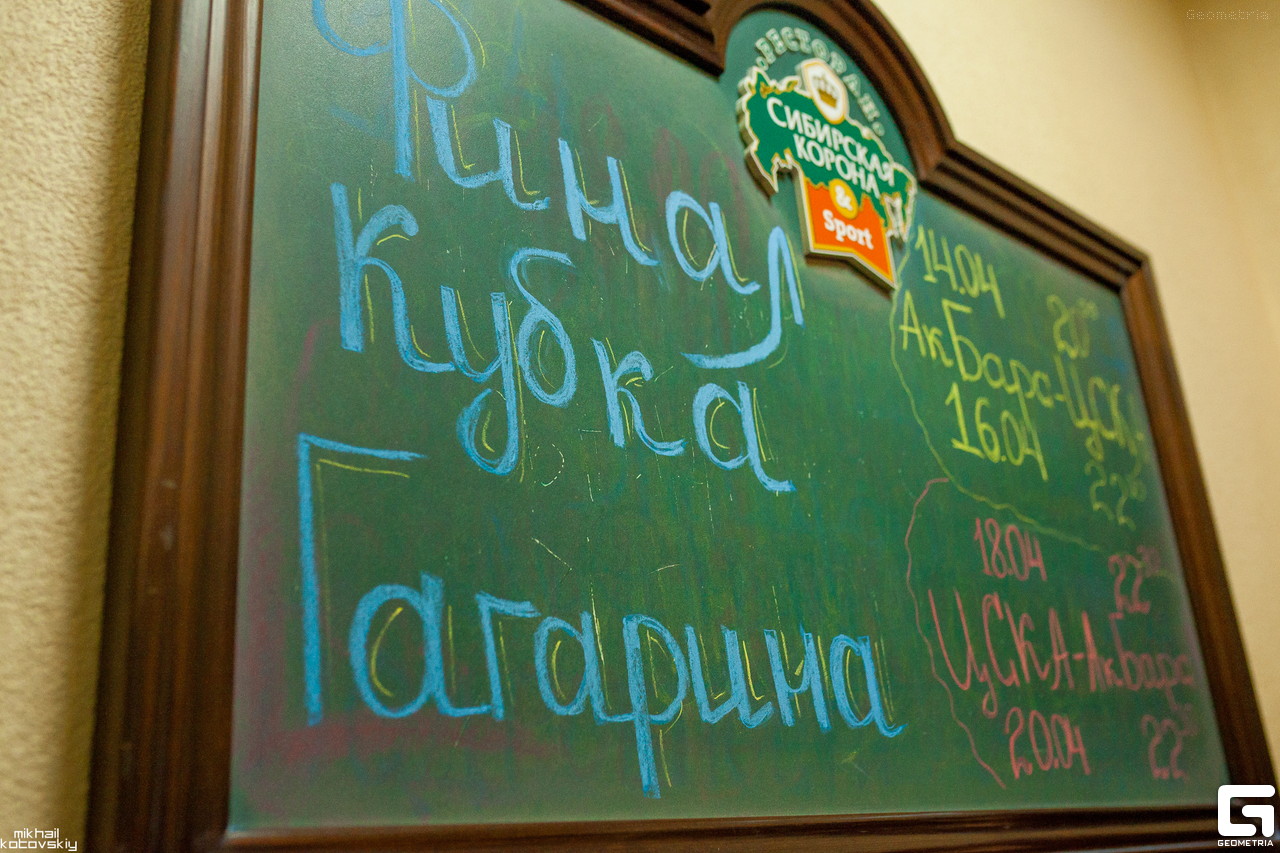 Финал
Кубка
Гагарина
РЕСТОРАН
СИБИРСКАЯ
КОРОНА
&
Sport
14.04 20⁰⁰
АкБарс-ЦСКА
16.04
18.04
ЦСКА-АкБарс
20.04
Geometria
mikhail
kotovskiy
GEOMETRIA